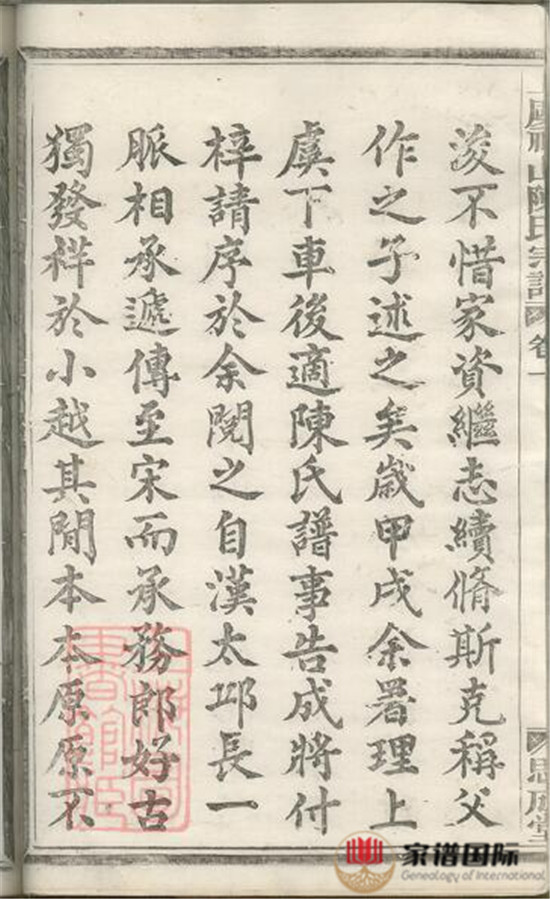 浚不惜家資繼志續脩斯克稱父
作之子述之矣歲甲戌余署理上
虞下車後適陳氏譜事告成將付
梓請序於余閱之自漢太邱長一
脈相承遞傳至宋而承務郎好古
獨發祥於小越其間本本原原不
山陳氏宗譜
卷一
思
堂
家谱国际
Genealogy of International